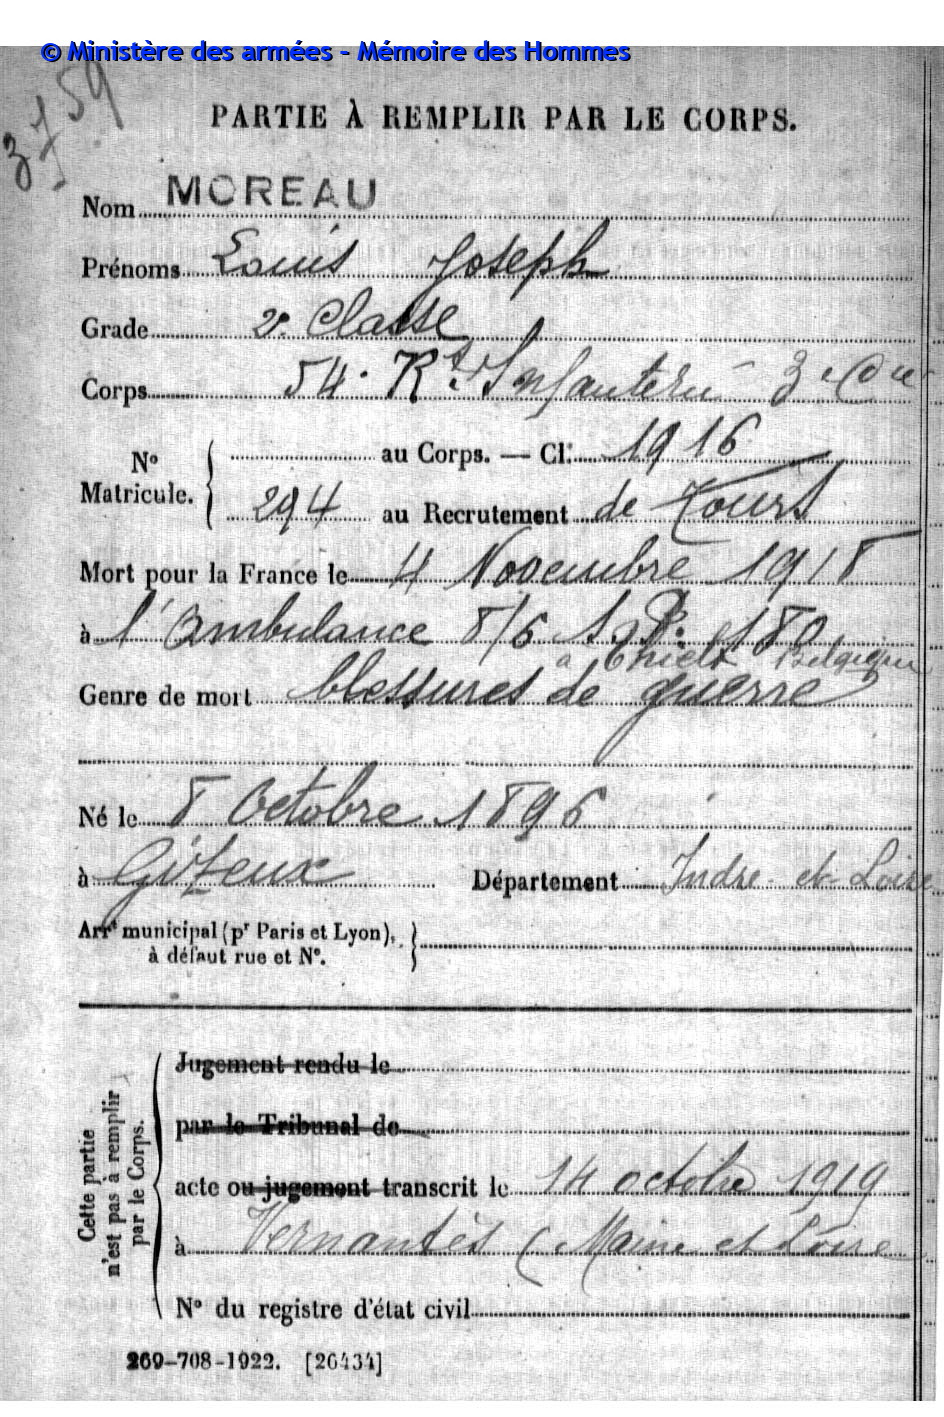 © Ministère des armées - Mémoire des Hommes
3759
PARTIE À REMPLIR PAR LE CORPS.
Nom MOREAU
Prénoms Louis Joseph
Grade 2e Classe
Corps 54e Rt. Infanterie 3e Cie
No Matricule. { au Corps. — Cl. 1916
294 au Recrutement de Tours
Mort pour la France le 4 Novembre 1918
à l'Ambulance 8/6 S.P. 180
à Thielt Belgique
Genre de mort blessures de guerre
Né le 8 Octobre 1896
à Gizeux Département Indre et Loire
Arrt municipal (pr Paris et Lyon), à défaut rue et No. }
Cette partie n'est pas à remplir par le Corps. {
Jugement rendu le
par le Tribunal de
acte ou jugement transcrit le 14 octobre 1919
à Vernantes (Maine et Loire
No du registre d'état civil
269-708-1922. [26434]